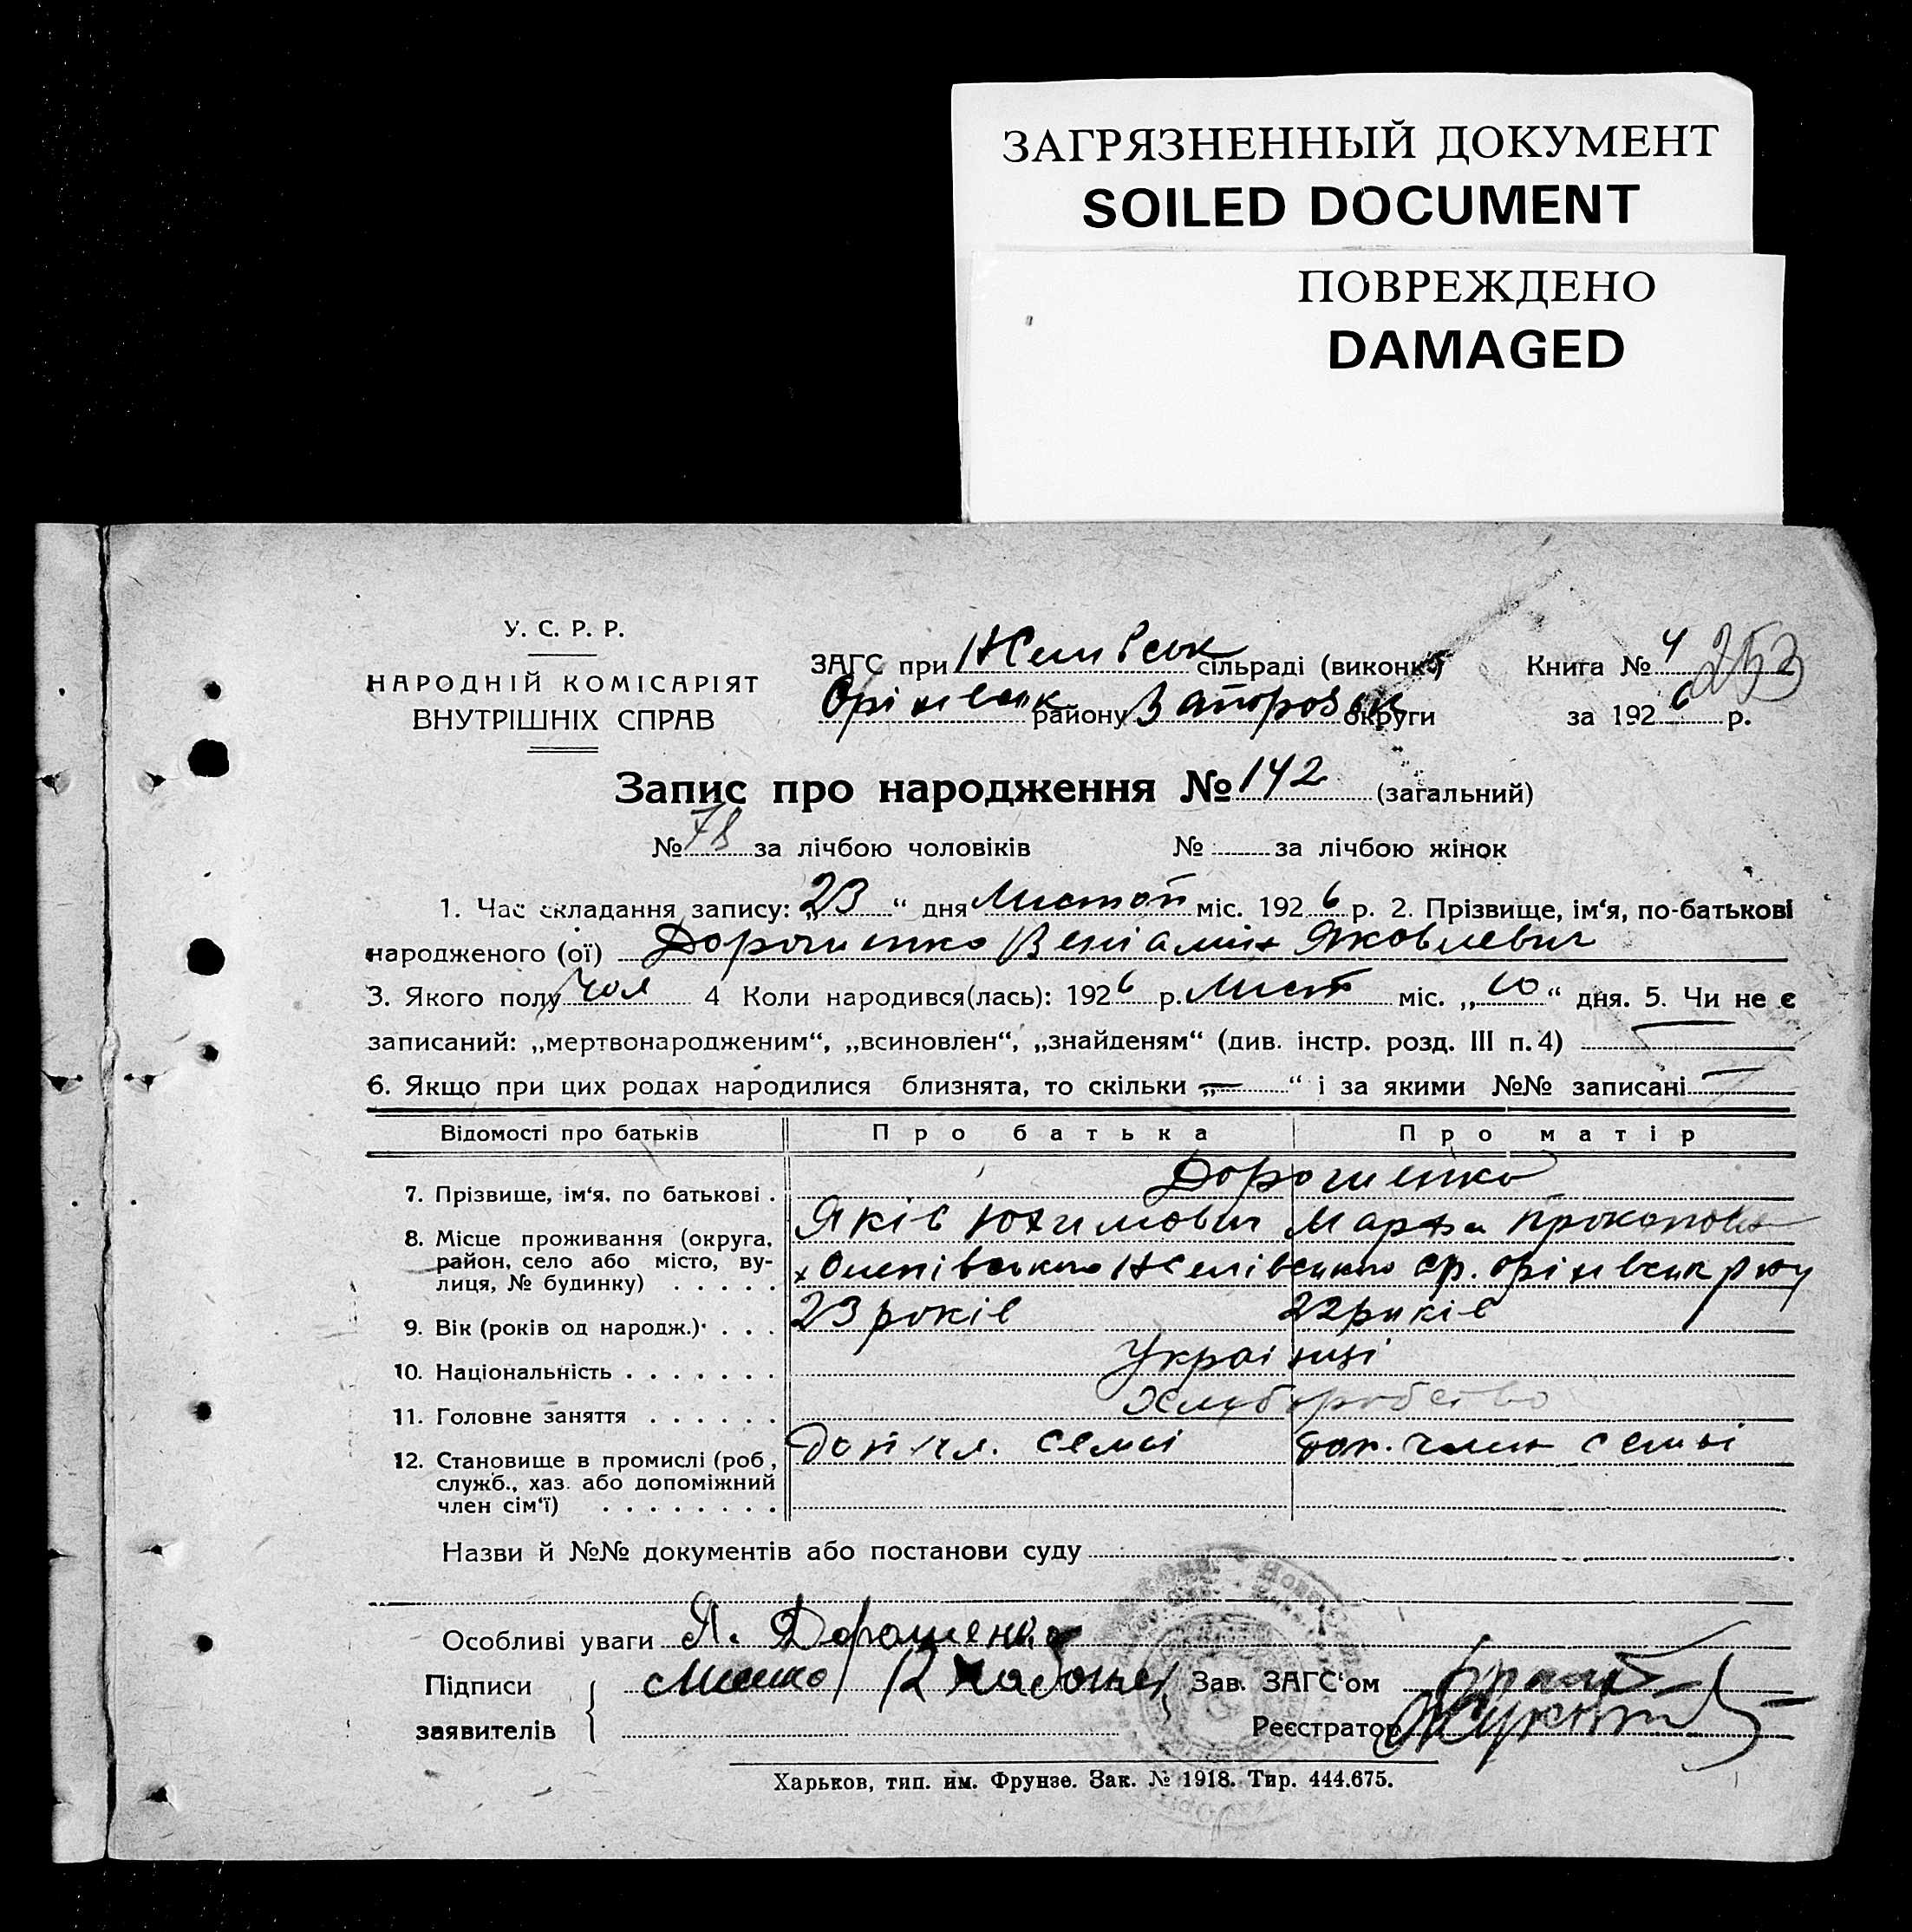 ЗАГРЯЗНЕННЫЙ ДОКУМЕНТ
SOILED DOCUMENT
ПОВРЕЖДЕНО
DAMAGED
У. С. Р. Р.
НАРОДНІЙ КОМІСАРІЯТ
ВНУТРІШНІХ СПРАВ
ЗАГС при сільраді (виконк.) Книга № 4 253
Оріхівськ району Запорозьк округи за 1926 р.
Запис про народження № 142 (загальний)
№ 78 за лічбою чоловіків № за лічбою жінок
1. Час складання запису: „23“ дня Листоп міс. 1926 р. 2. Прізвище, ім‘я, по-батькові
народженого (ої) Дорошенко Веніамін Яковлевич
3. Якого полу чол 4 Коли народився(лась): 1926 р. Лист міс. „10“ дня. 5. Чи не є
записаний: „мертвонародженим“, „всиновлен“, „знайденям“ (див. інстр. розд. III п. 4) —
6. Якщо при цих родах народилися близнята, то скільки „—“ і за якими №№ записані —
Відомості про батьків Про батька Про матір
7. Прізвище, ім‘я, по батькові . Дорошенко
Яків Юхимович Марфа Прокоповна
8. Місце проживання (округа, район, село або місто, вулиця, № будинку) . . . . .
9. Вік (років од народж.) . . . 23 років 22 років
10. Національність . . . . . . . Українці
11. Головне заняття . . . . . . Хлуборобство
12. Становище в промислі (роб., служб., хаз. або допоміжний член сім‘ї) . . . . . . . . Доп чл. семьі доп. член семьі
Назви й №№ документів або постанови суду
Особливі уваги Я. Дорошенко
Підписи заявителів Зав. ЗАГС‘ом
Реєстратор
Харьков, тип. им. Фрунзе. Зак. № 1918. Тир. 444.675.